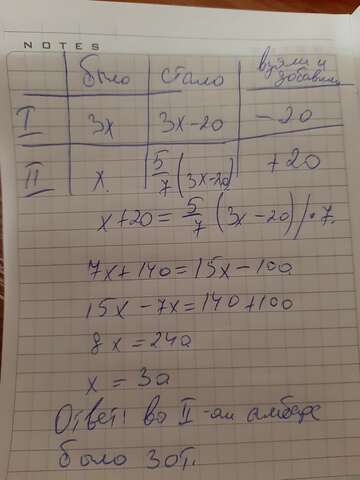 NOTES
было стало взяли и добавили
I 3x 3x-20 -20
II x. 5/7(3x-20) +20
x+20=5/7(3x-20)/•7.
7x+140=15x-100
15x-7x=140+100
8x=240
x=30
Ответ: во II-ом амбаре
было 30т.